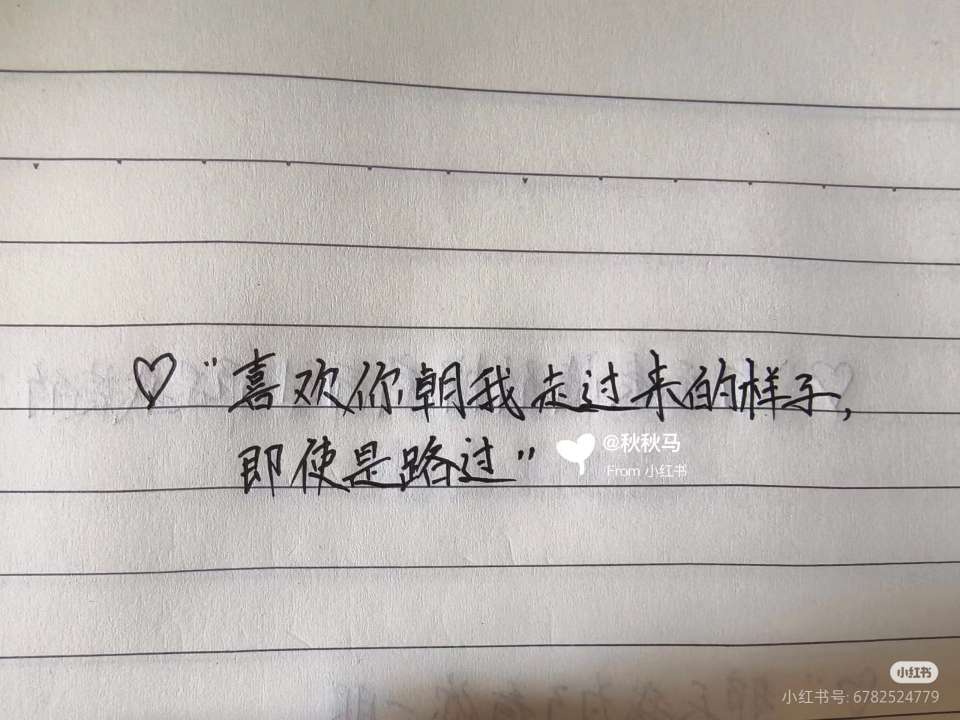 ♡“喜欢你朝我走过来的样子,
即使是路过”
@秋秋马
From 小红书
小红书
小红书号: 6782524779